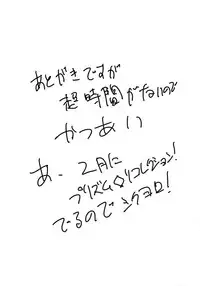 あとがきですが
超時間がないので
かつあい
あ、2月に
プリズム☆リコレクション!
でるのでシクヨロ!